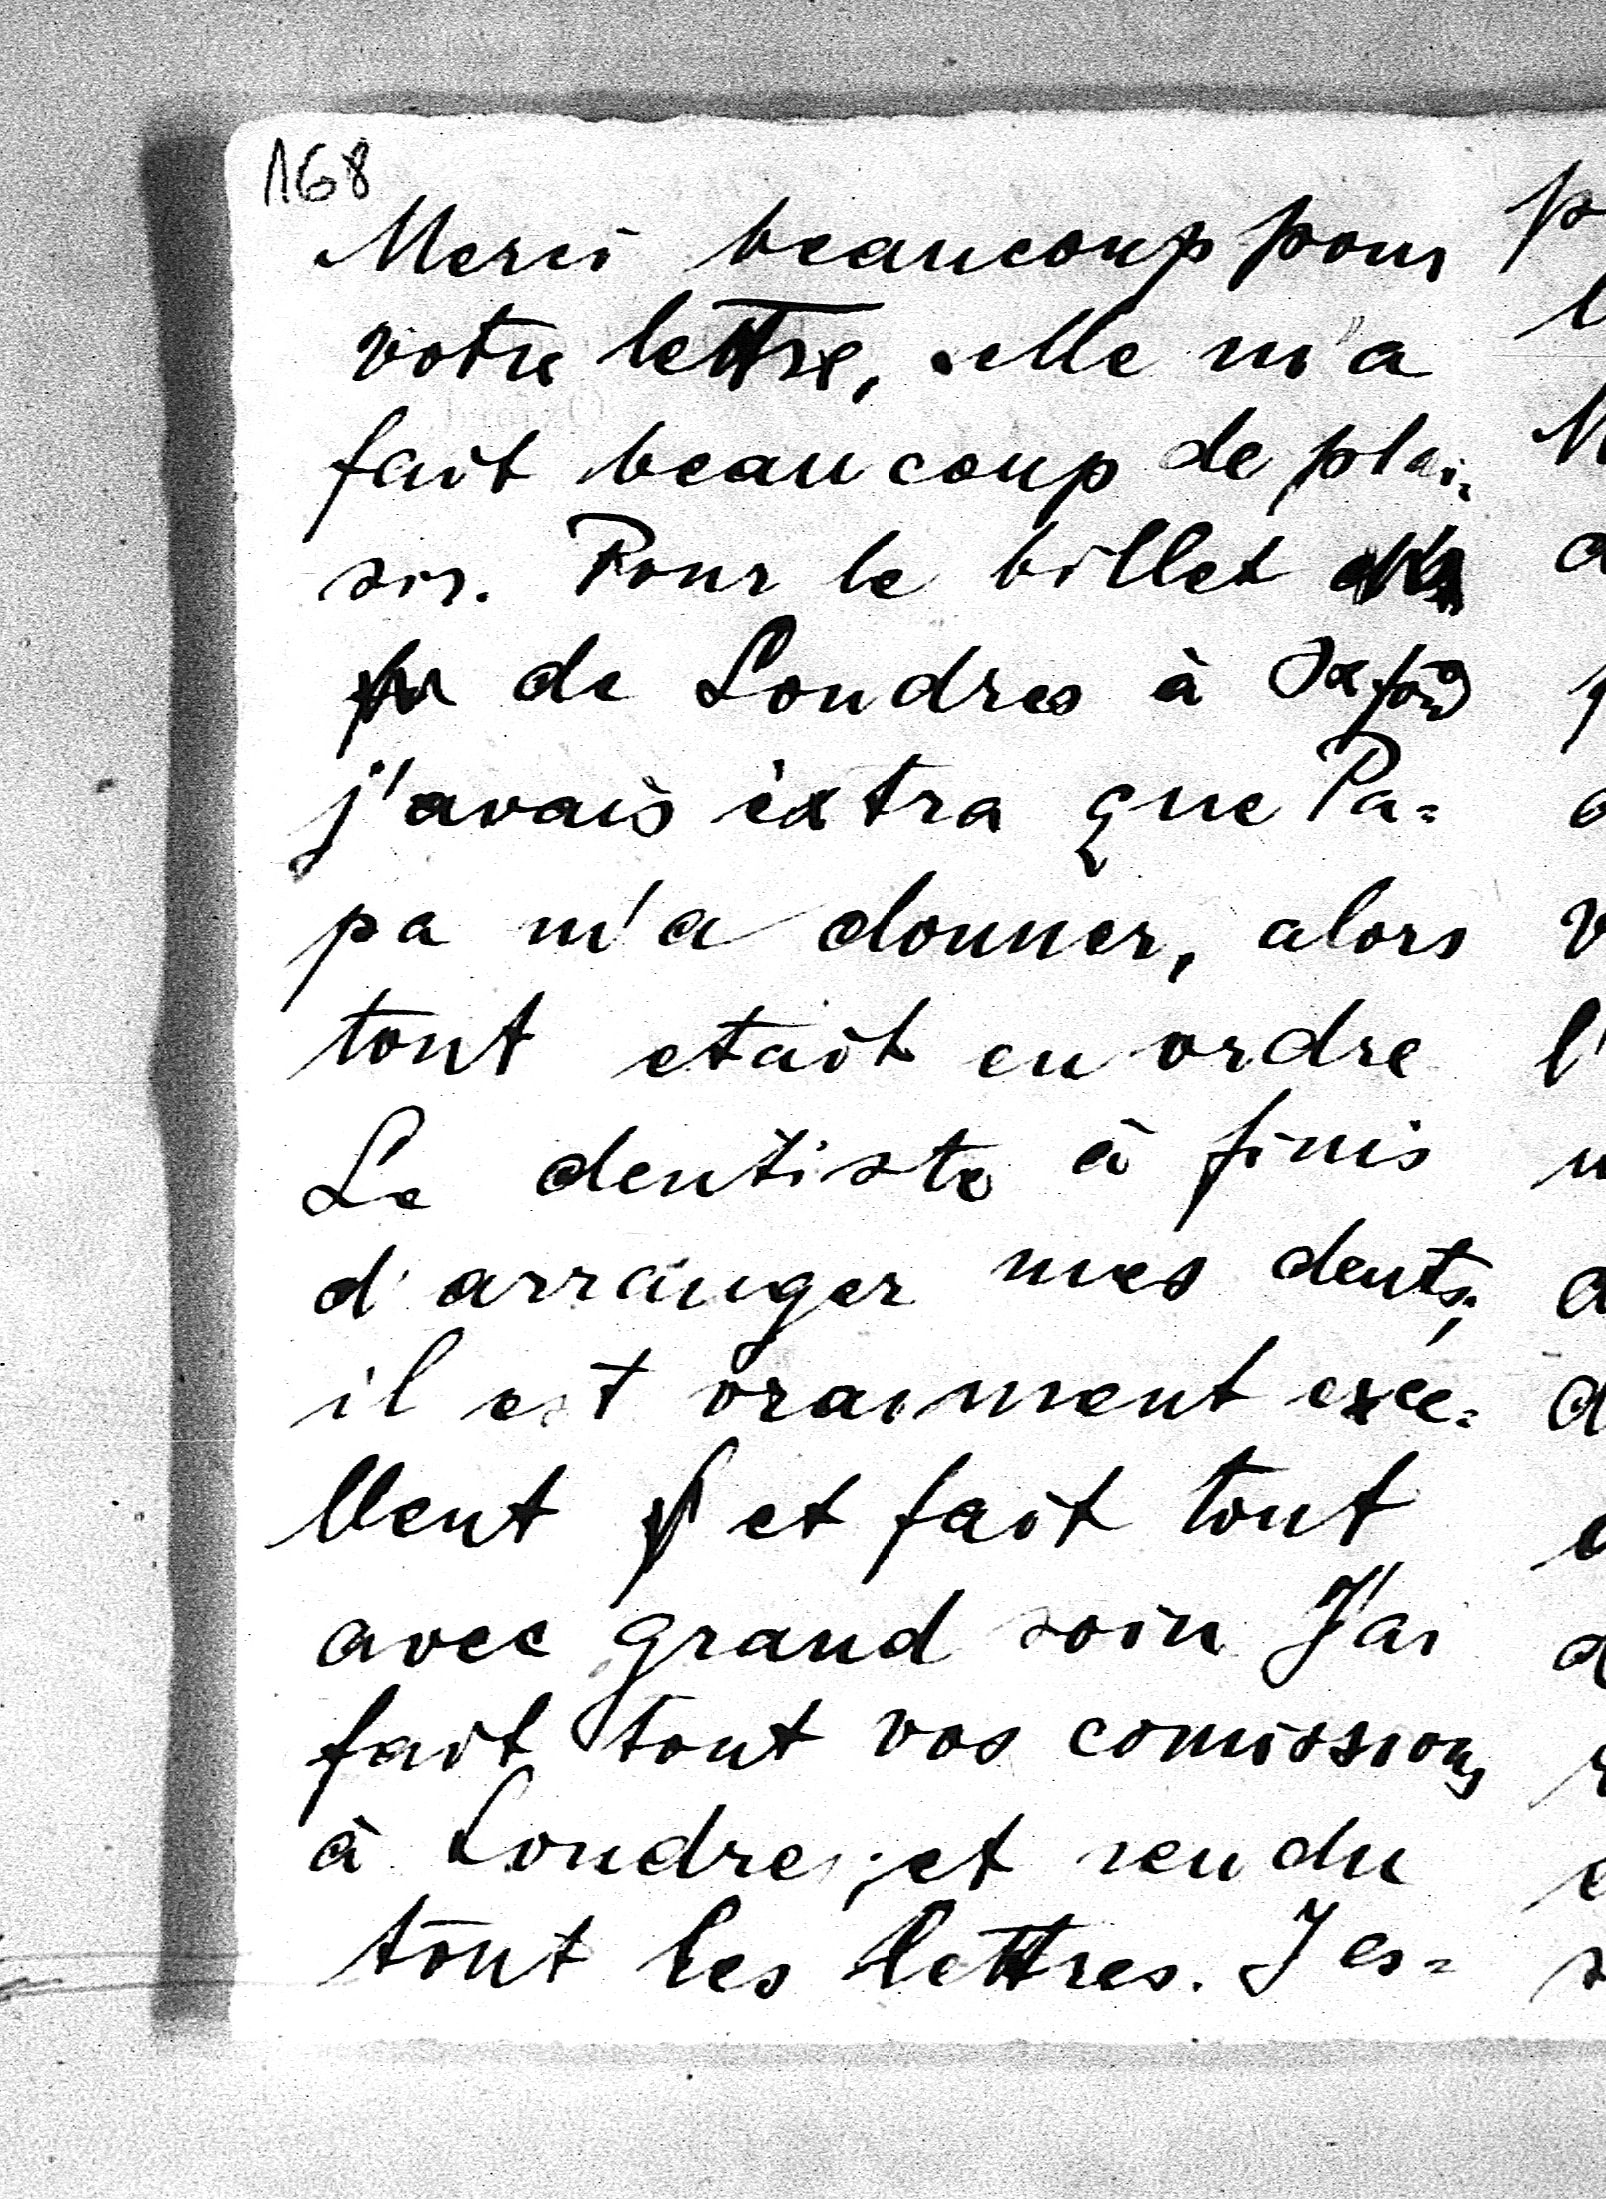 168
Merci beaucoup pour
votre lettre, elle m'a
fait beaucoup de plai=
sir. Pour le billet
de Londres à Oxford
j'avais èxtra que Pa=
pa m'a donner, alors
tout etait en ordre
Le dentiste à finis
d'arranger mes dents,
il est vraiment exce=
llent et fait tout
avec grand soin J'ai
fait tout vos comissions
à Londres, et rendu
tout les lettres. J'es=